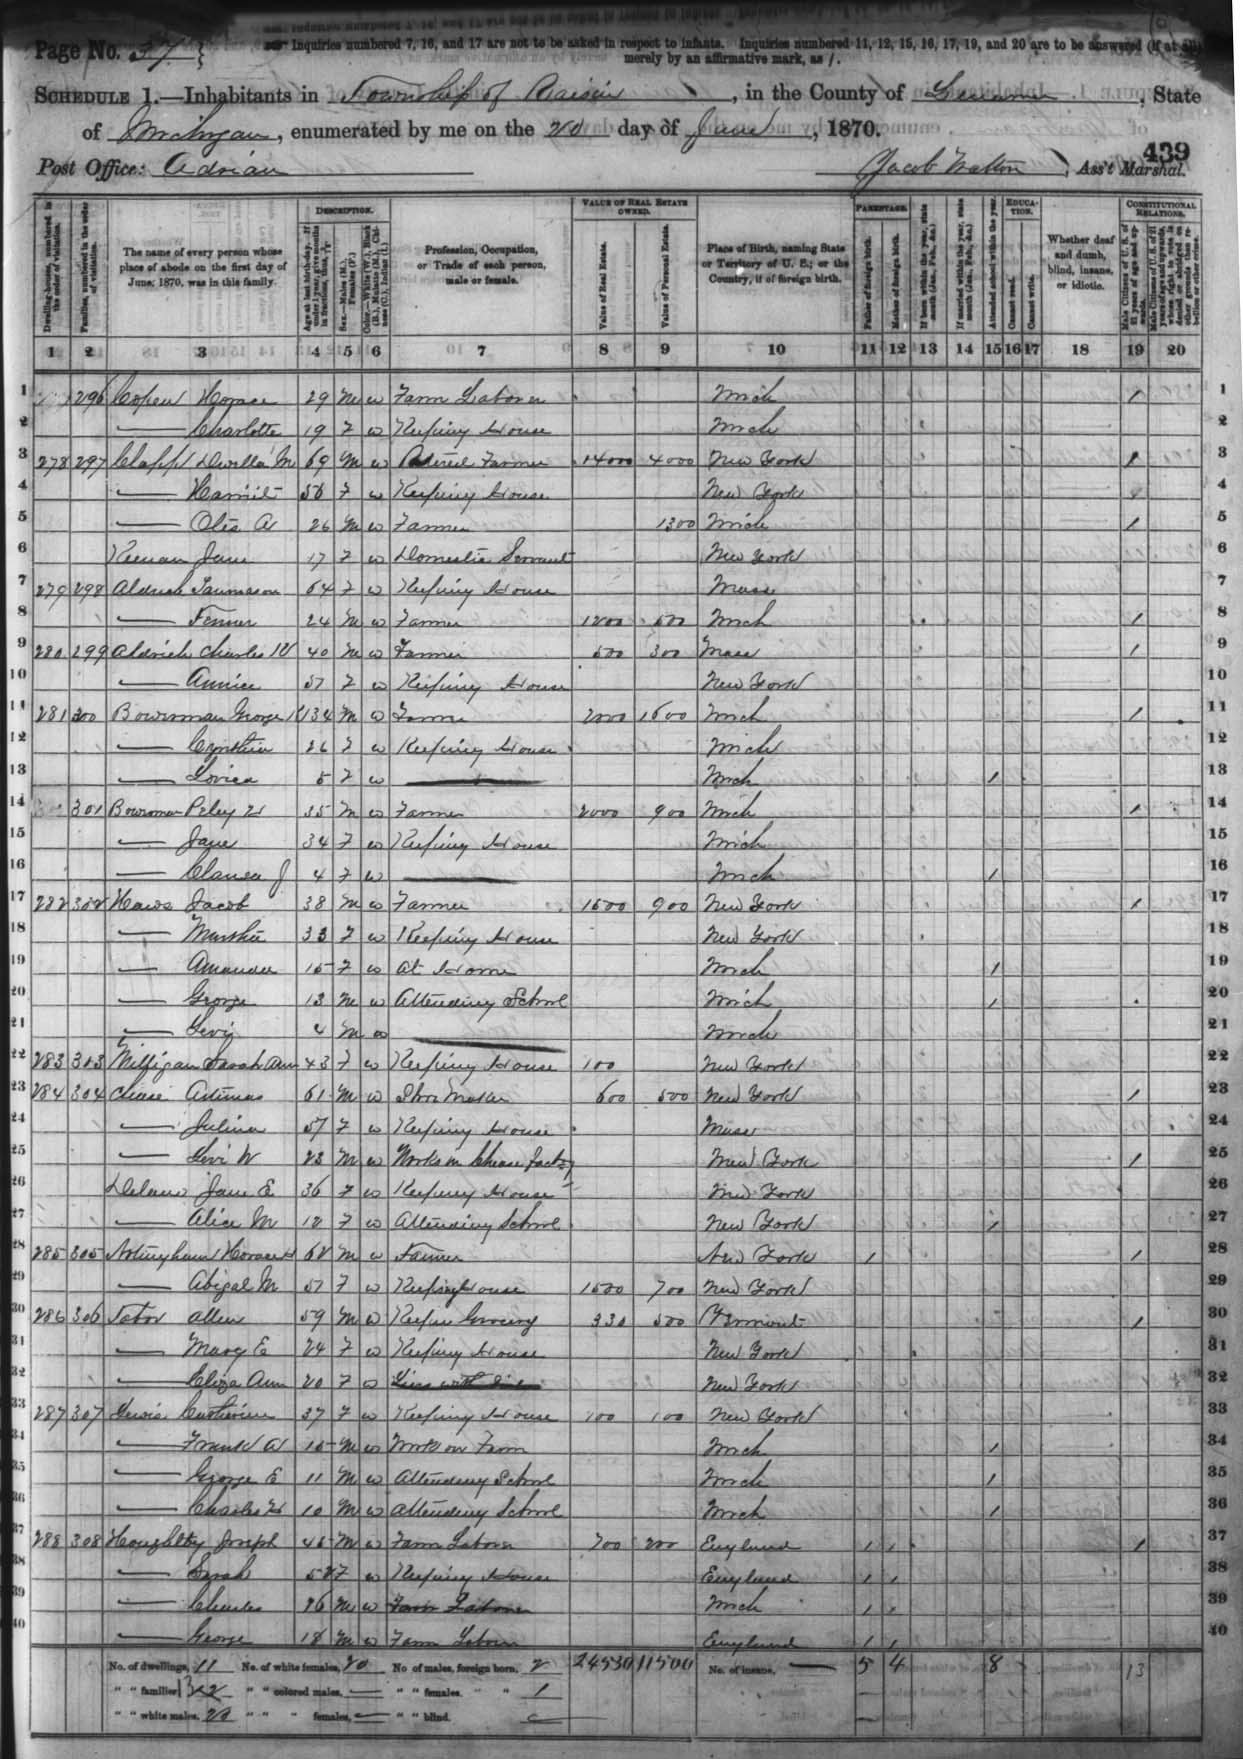 Page No. 37
Inquiries numbered 7, 16, and 17 are not to be asked in respect to infants. Inquiries numbered 11, 12, 15, 16, 17, 19, and 20 are to be answered (if at all) merely by an affirmative mark, as /.
SCHEDULE 1.—Inhabitants in Township of Raisin, in the County of Lenawee, State
of Michigan, enumerated by me on the 20 day of June, 1870.
439
Post Office: Adrian Jacob Walton, Ass't Marshal.
DESCRIPTION. VALUE OF REAL ESTATE OWNED. PARENTAGE. EDUCATION. CONSTITUTIONAL RELATIONS.
Dwelling-houses, numbered in the order of visitation.
Families, numbered in the order of visitation.
The name of every person whose place of abode on the first day of June, 1870, was in this family.
Age at last birth-day. If under 1 year, give months in fractions, thus,
Sex.—Males (M.), Females (F.)
Color.—White (W.), Black (B.), Mulatto (M.), Chinese (C.), Indian (I.)
Profession, Occupation, or Trade of each person, male or female.
Value of Real Estate.
Value of Personal Estate.
Place of Birth, naming State or Territory of U. S.; or the Country, if of foreign birth.
Father of foreign birth.
Mother of foreign birth.
If born within the year, state month (Jan., Feb., &c.)
If married within the year, state month (Jan., Feb., &c.)
Attended school within the year.
Cannot read.
Cannot write.
Whether deaf and dumb, blind, insane, or idiotic.
Male Citizens of U. S. of 21 years of age and upwards.
Male Citizens of U. S. of 21 years of age and upwards, whose right to vote is denied or abridged on other grounds than rebellion or other crime.
1 2 3 4 5 6 7 8 9 10 11 12 13 14 15 16 17 18 19 20
1 296 Copen Horace 29 M W Farm Laborer Mich / 1
2 — Charlotte 19 F W Keeping House Mich 2
3 278 297 Clapp M 69 M W Retired Farmer 14000 4000 New York / 3
4 — Harriet 56 F W Keeping House New York 4
5 — Otis A 26 M W Farmer 1300 Mich / 5
6 Keenan Jane 17 F W Domestic Servant New York 6
7 279 298 Aldrich 64 F W Keeping House Mass 7
8 — Fenner 24 M W Farmer 1200 500 Mich / 8
9 280 299 Aldrich Charles W 40 M W Farmer 500 300 Mass / 9
10 — 37 F W Keeping House New York 10
11 281 300 Bowerman George 34 M W Farmer 2000 1600 Mich / 11
12 — Cynthia 26 F W Keeping House Mich 12
13 — Lovica 5 F W — Mich / 13
14 301 Bowerman Peleg 35 M W Farmer 2000 900 Mich / 14
15 — Jane 34 F W Keeping House Mich 15
16 — J 4 F W — Mich / 16
17 282 302 Haws Jacob 38 M W Farmer 1500 900 New York / 17
18 — 33 F W Keeping House New York 18
19 — Amanda 15 F W At Home Mich / 19
20 — George 13 M W Attending School Mich / 20
21 — Levi 4 M W — Mich 21
22 283 303 Milligan Sarah Ann 43 F W Keeping House 100 New York 22
23 284 304 Chase Artemas 61 M W Shoe Maker 600 500 New York / 23
24 — Julina 57 F W Keeping House Mass 24
25 — Levi W 23 M W Works in Cheese factory New York / 25
26 Delano Jane E 36 F W Keeping House New York 26
27 — Alice M 12 F W Attending School New York / 27
28 285 305 Notingham Horace 62 M W Farmer New York / / 28
29 — Abigal M 57 F W Keeping House 1500 700 New York 29
30 286 306 Tabor Allen 59 M W Keeper Grocery 330 500 Vermont / 30
31 — Mary E 24 F W Keeping House New York 31
32 — Eliza Ann 20 F W New York 32
33 287 307 Lewis 37 F W Keeping House 100 100 New York 33
34 — Frank A 15 M W Work on Farm Mich / 34
35 — George E 11 M W Attending School Mich / 35
36 — Charles H 10 M W Attending School Mich / 36
37 288 308 Joseph 45 M W Farm Laborer 700 200 England / / / 37
38 — Sarah 52 F W Keeping House England / / 38
39 — Charles 16 M W Farm Laborer Mich / / 39
40 — George 18 M W Farm Laborer England / / 40
No. of dwellings, 11 No. of white females, 20 No of males, foreign born, 2 24530 11500 No. of insane, — 5 4 8 13
" " families, " " colored males, — " " females, " " 1
" " white males, 20 " " " females, — " " blind.